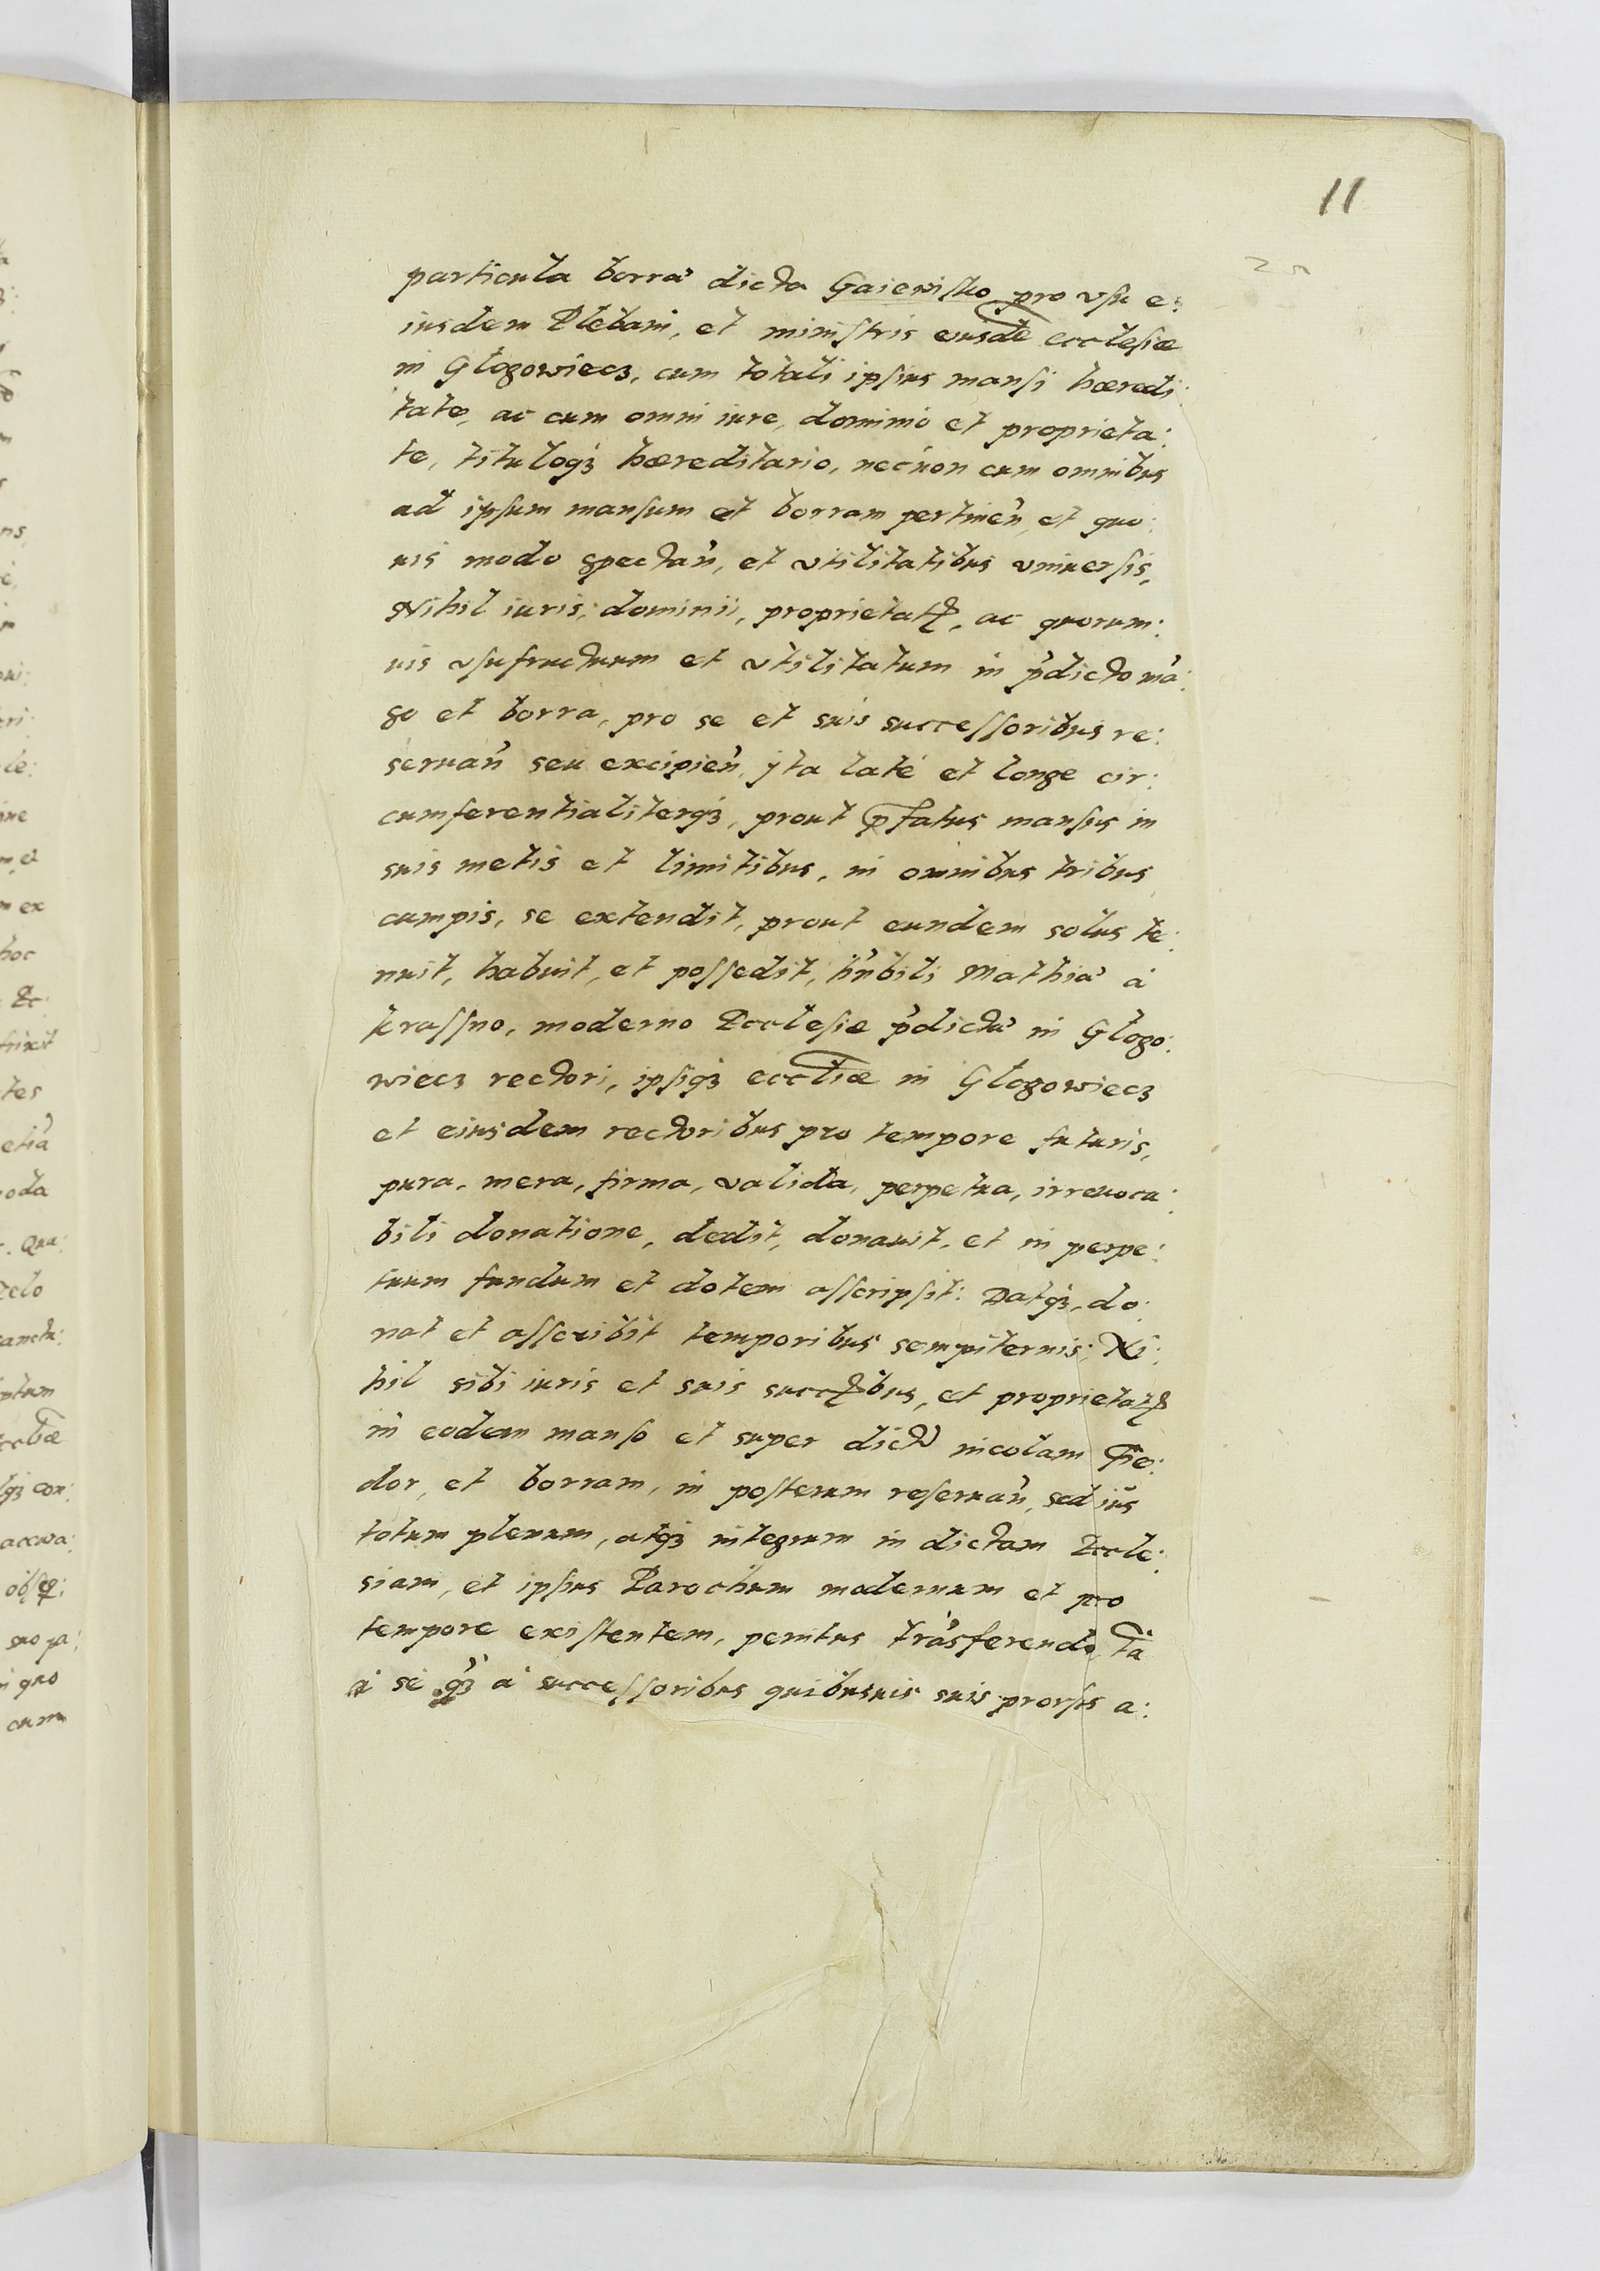 11
particula borra' dicta Gaiewisko pro vsu e:
iusdem Plebani, et ministris eiusdē ecclesiæ
in Glogowiecz, cum totali ipsius mansi hæredi:
tate, ac cum omni iure, dominio et proprieta:
te, tituloqȝ hæreditario, necnon cum omnibus
ad ipsum mansum et borram pertineñ, et quo:
uis modo spectañ, et vtilitatibus vniuersis,
Nihil iuris, dominii, proprietatꝭ, ac quorum:
uis vsufructuum et vtilitatum in p'dicto mã:
so et borra, pro se et suis successoribus re:
seruañ seu excipieñ, yta latè et longe cir:
cumferentialiterqȝ, prout p̄fatus mansus in
suis metis et limitibus, in omnibus tribus
campis, se extendit, prout eundem solus te:
nuit, habuit, et possedit, hñbili Mathia' à
Krassno, moderno Ecclesiæ p'dicta' in Glogo:
wiecz rectori, ipsiqȝ eccliæ in Glogowiecz
et eiusdem rectoribus pro tempore futuris,
pura, mera, firma, valida, perpetua, irreuoca:
bili donatione, dedit, donauit, et in perpe:
tuum fundum et dotem asscripsit: Datqȝ, do:
nat et asscribit temporibus sempiternis; Ni:
hil sibi iuris et suis succꝭbus, et proprietatꝭ
in eodem manso et super dict' incolam Fie:
dor, et borram, in posterum reseruañ, sed ius
totum plenum, atqȝ integrum in dictam Eccle:
siam, et ipsius Parochum modernum et pro
tempore existentem, penitus trãsferendo, tã
à se qȝ à successoribus quibusuis suis prorsus a: